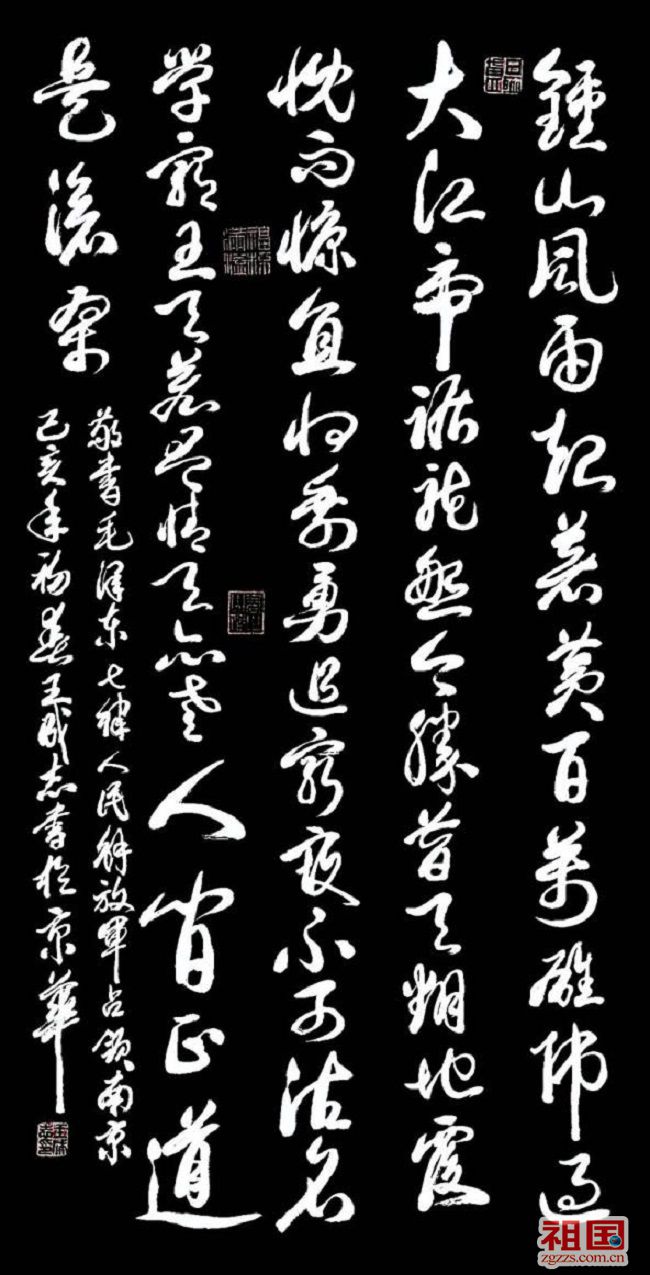 鍾山风雨起苍黄百万雄师过
大江虎踞龙盘今胜昔天翻地覆
慨而慷宜将剩勇追穷寇不可沽名
学霸王天若有情天亦老人间正道
是沧桑
敬书毛泽东七律人民解放军占领南京
己亥年初春王成志书於京华
祖国
zgzzs.com.cn